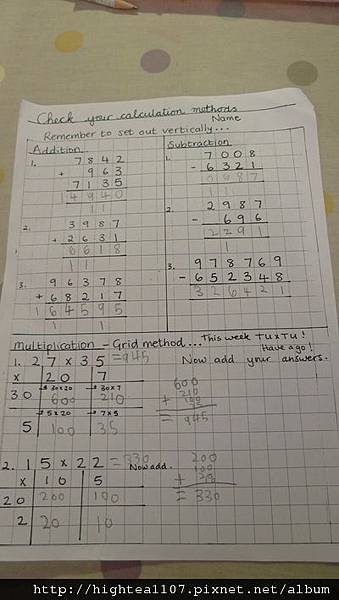 Check your calculation methods
Name
Remember to set out vertically...
Addition
1. 7842
+ 963
7135
4940
11
2. 3987
+ 2631
6618
11
3. 96378
+ 68217
164595
1 1
Subtraction
1. 7008
- 6321
0687
2. 2987
- 696
2291
1
3. 978769
- 652348
326421
Multiplication - Grid method... This week TU x TU!
Have a go!
1. 27 x 35 = 945
Now add your answers.
x 20 7
30x20 30x7
30 600 210
5x20 7x5
5 100 35
600
210
100
+
= 945
2. 15 x 22 = 330
Now add.
x 10 5
20 200 100
2 20 10
200
100
+ 20
= 330
http://hightea1107.pixnet.net/album